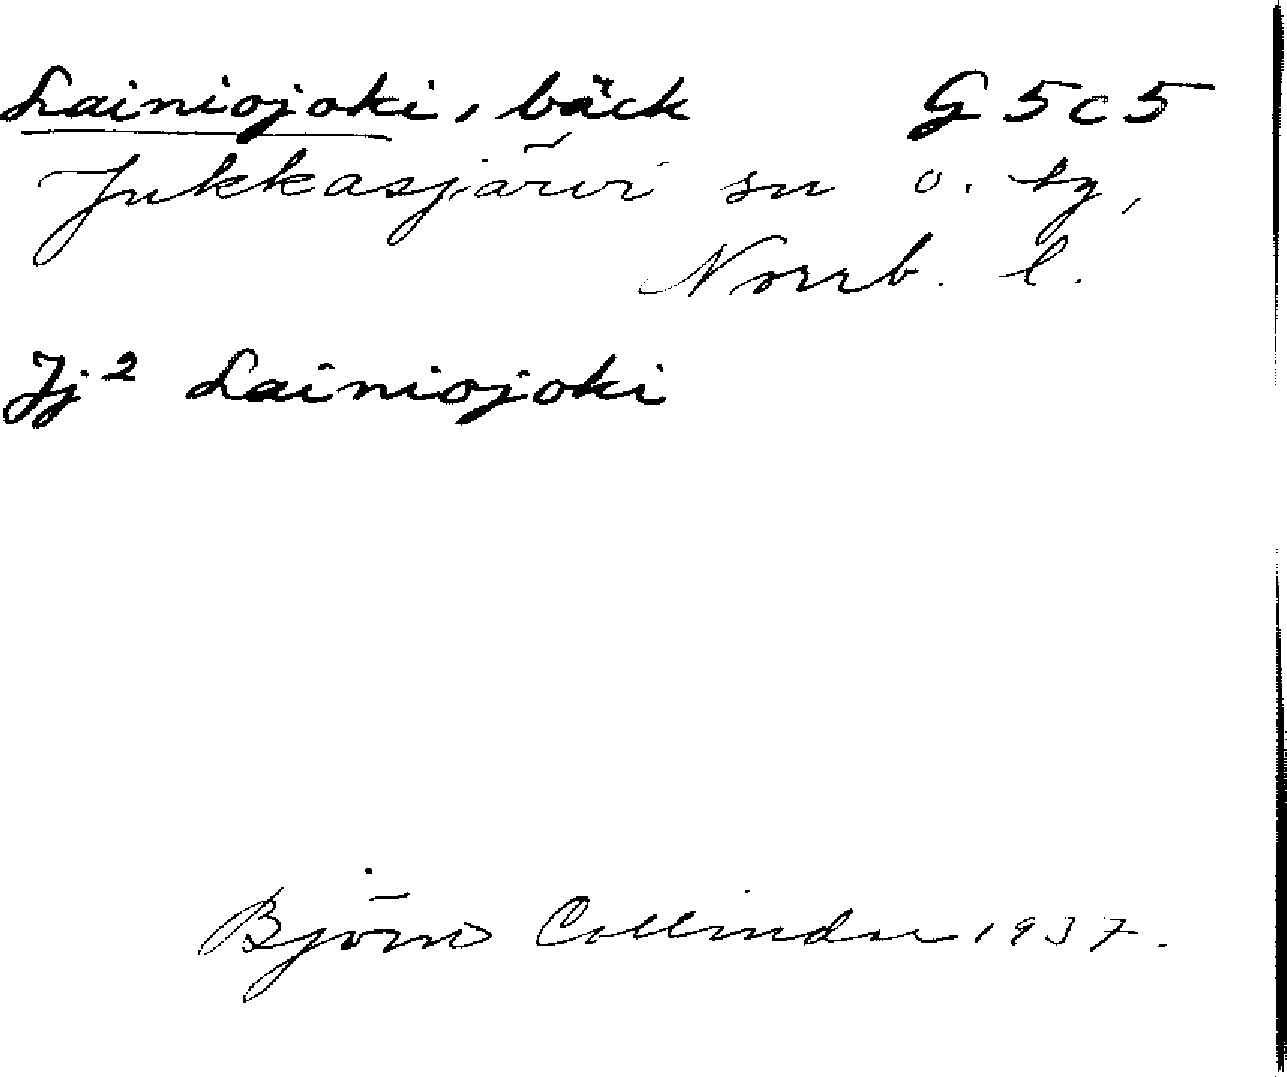 Lainiojoki, bäck G 5 c 5
Jukkasjärvi sn o. tg,
Norrb. l.
Jj² Lainiojoki
Björn Collinder 1937.